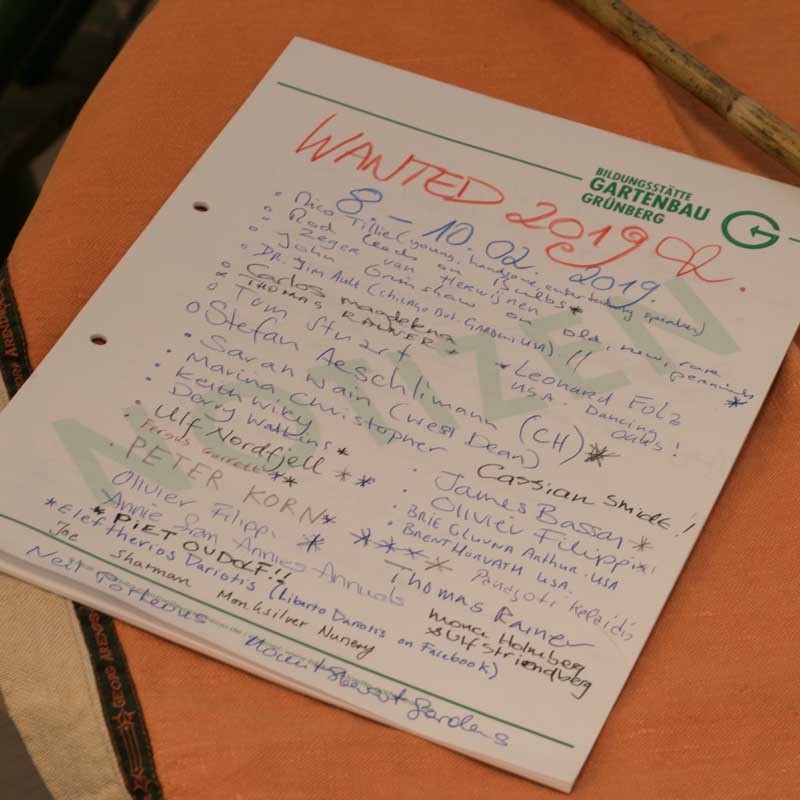 BILDUNGSSTÄTTE
GARTENBAU
GRÜNBERG
G
WANTED 2019
8. – 10.02. 2019.
Nico Tillie (young, handsome, entertaining speaker)
Rod Leeds on Bulbs *
Zeger van Herwijnen
John Grimshaw on old, new, rare perennials *
DR. Jim Ault (Chicago Bot. GARDEN USA) !!
Carlos Magdalena
* THOMAS RAINER *
Tom Stuart
* Leonard Folz
USA. Dancing
Oaks!
Stefan Aeschlimann (CH) *
Sarah Wain (West Dean)
Marina Christopher
Keith Wiley
Derry Watkins *
Ulf Nordfjell * *
Fergus Garrett * *
PETER KORN *
Cassian Smidt!
James Basson
Olivier Filippi *
Olivier Filippi *
Annie from Annies Annuals
BRIE Arthur. USA
BRENT HORVATH USA.
Panayoti Kelaidis
* PIET OUDOLF!!
Thomas Rainer
* Eleftherios Dariotis (Liberto Dariotis on Facebook)
Mona Holmberg
& Ulf Strindberg
Joe Sharman Monksilver Nursery
Neil Porteous Mount Stewart gardens
NOTIZEN
GEORG ARENDS